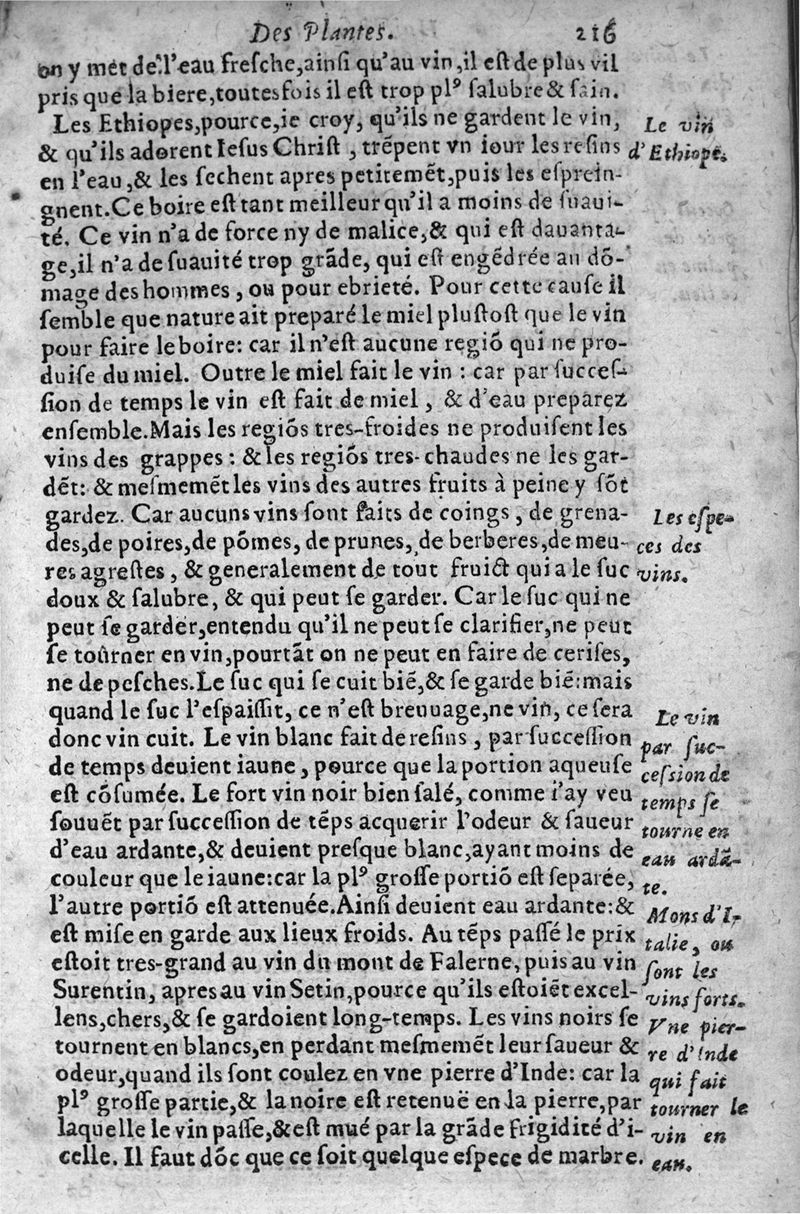 Des Plantes. 216
on y met de l'eau fresche,ainsi qu'au vin,il est de plus vil
pris que la biere,toutesfois il est trop plꝰ salubre& sain.
Les Ethiopes,pource,ie croy, qu'ils ne gardent le vin,
& qu'ils adorent Iesus Christ , trẽpent vn iour les resins
en l'eau,& les sechent apres petitemẽt,puis les esprein-
gnent.Ce boire est tant meilleur qu'il a moins de suaui-
té. Ce vin n'a de force ny de malice,& qui est dauanta-
ge,il n'a de suauité trop grãde, qui est engẽdrée au dõ-
mage des hommes , ou pour ebrieté. Pour cette cause il
semble que nature ait preparé le miel plustost que le vin
pour faire le boire: car il n'est aucune regiõ qui ne pro-
duise du miel. Outre le miel fait le vin : car par succes-
sion de temps le vin est fait de miel , & d'eau preparez
ensemble.Mais les regiõs tres-froides ne produisent les
vins des grappes : & les regiõs tres-chaudes ne les gar-
dẽt: & mesmemẽt les vins des autres fruits à peine y sõt
gardez. Car aucuns vins sont faits de coings , de grena-
des,de poires,de põmes, de prunes, de berberes,de meu-
res agrestes , & generalement de tout fruict qui a le suc
doux & salubre, & qui peut se garder. Car le suc qui ne
peut se garder,entendu qu'il ne peut se clarifier,ne peut
se toûrner en vin,pourtãt on ne peut en faire de cerises,
ne de pesches.Le suc qui se cuit biẽ,& se garde biẽ:mais
quand le suc l'espaissit, ce n'est breuuage,ne vin, ce sera
donc vin cuit. Le vin blanc fait de resins , par succession
de temps deuient iaune , pource que la portion aqueuse
est cõsumée. Le fort vin noir bien salé, comme i'ay veu
souuẽt par succession de tẽps acquerir l'odeur & saueur
d'eau ardante,& deuient presque blanc,ayant moins de
couleur que le iaune:car la plꝰ grosse portiõ est separée,
l'autre portiõ est attenuée.Ainsi deuient eau ardante:&
est mise en garde aux lieux froids. Au tẽps passé le prix
estoit tres-grand au vin du mont de Falerne, puis au vin
Surentin, apres au vin Setin,pource qu'ils estoiẽt excel-
lens,chers,& se gardoient long-temps. Les vins noirs se
tournent en blancs,en perdant mesmemẽt leur saueur &
odeur,quand ils sont coulez en vne pierre d'Inde: car la
plꝰ grosse partie,& la noire est retenuë en la pierre,par
laquelle le vin passe,&est mué par la grãde frigidité d'i-
celle. Il faut dõc que ce soit quelque espece de marbre.
Le vin
d'Ethiopẽ.
Les espe-
ces des
vins.
Le vin
par suc-
cession de
temps se
tourne en
eau ardã-
te.
Mons d'I-
talie, ou
sont les
vins forts.
Vne pier-
re d'Inde
qui fait
tourner le
vin en
eau.